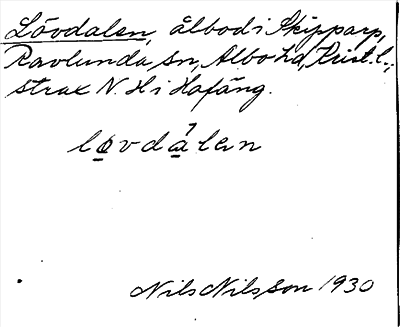 Lövdalen, ålbod i Skipparp,
Ravlunda sn, Albo hd, Krist. l.;
strax N. H i Hafäng.
lovdalen
Nils Nilsson 1930